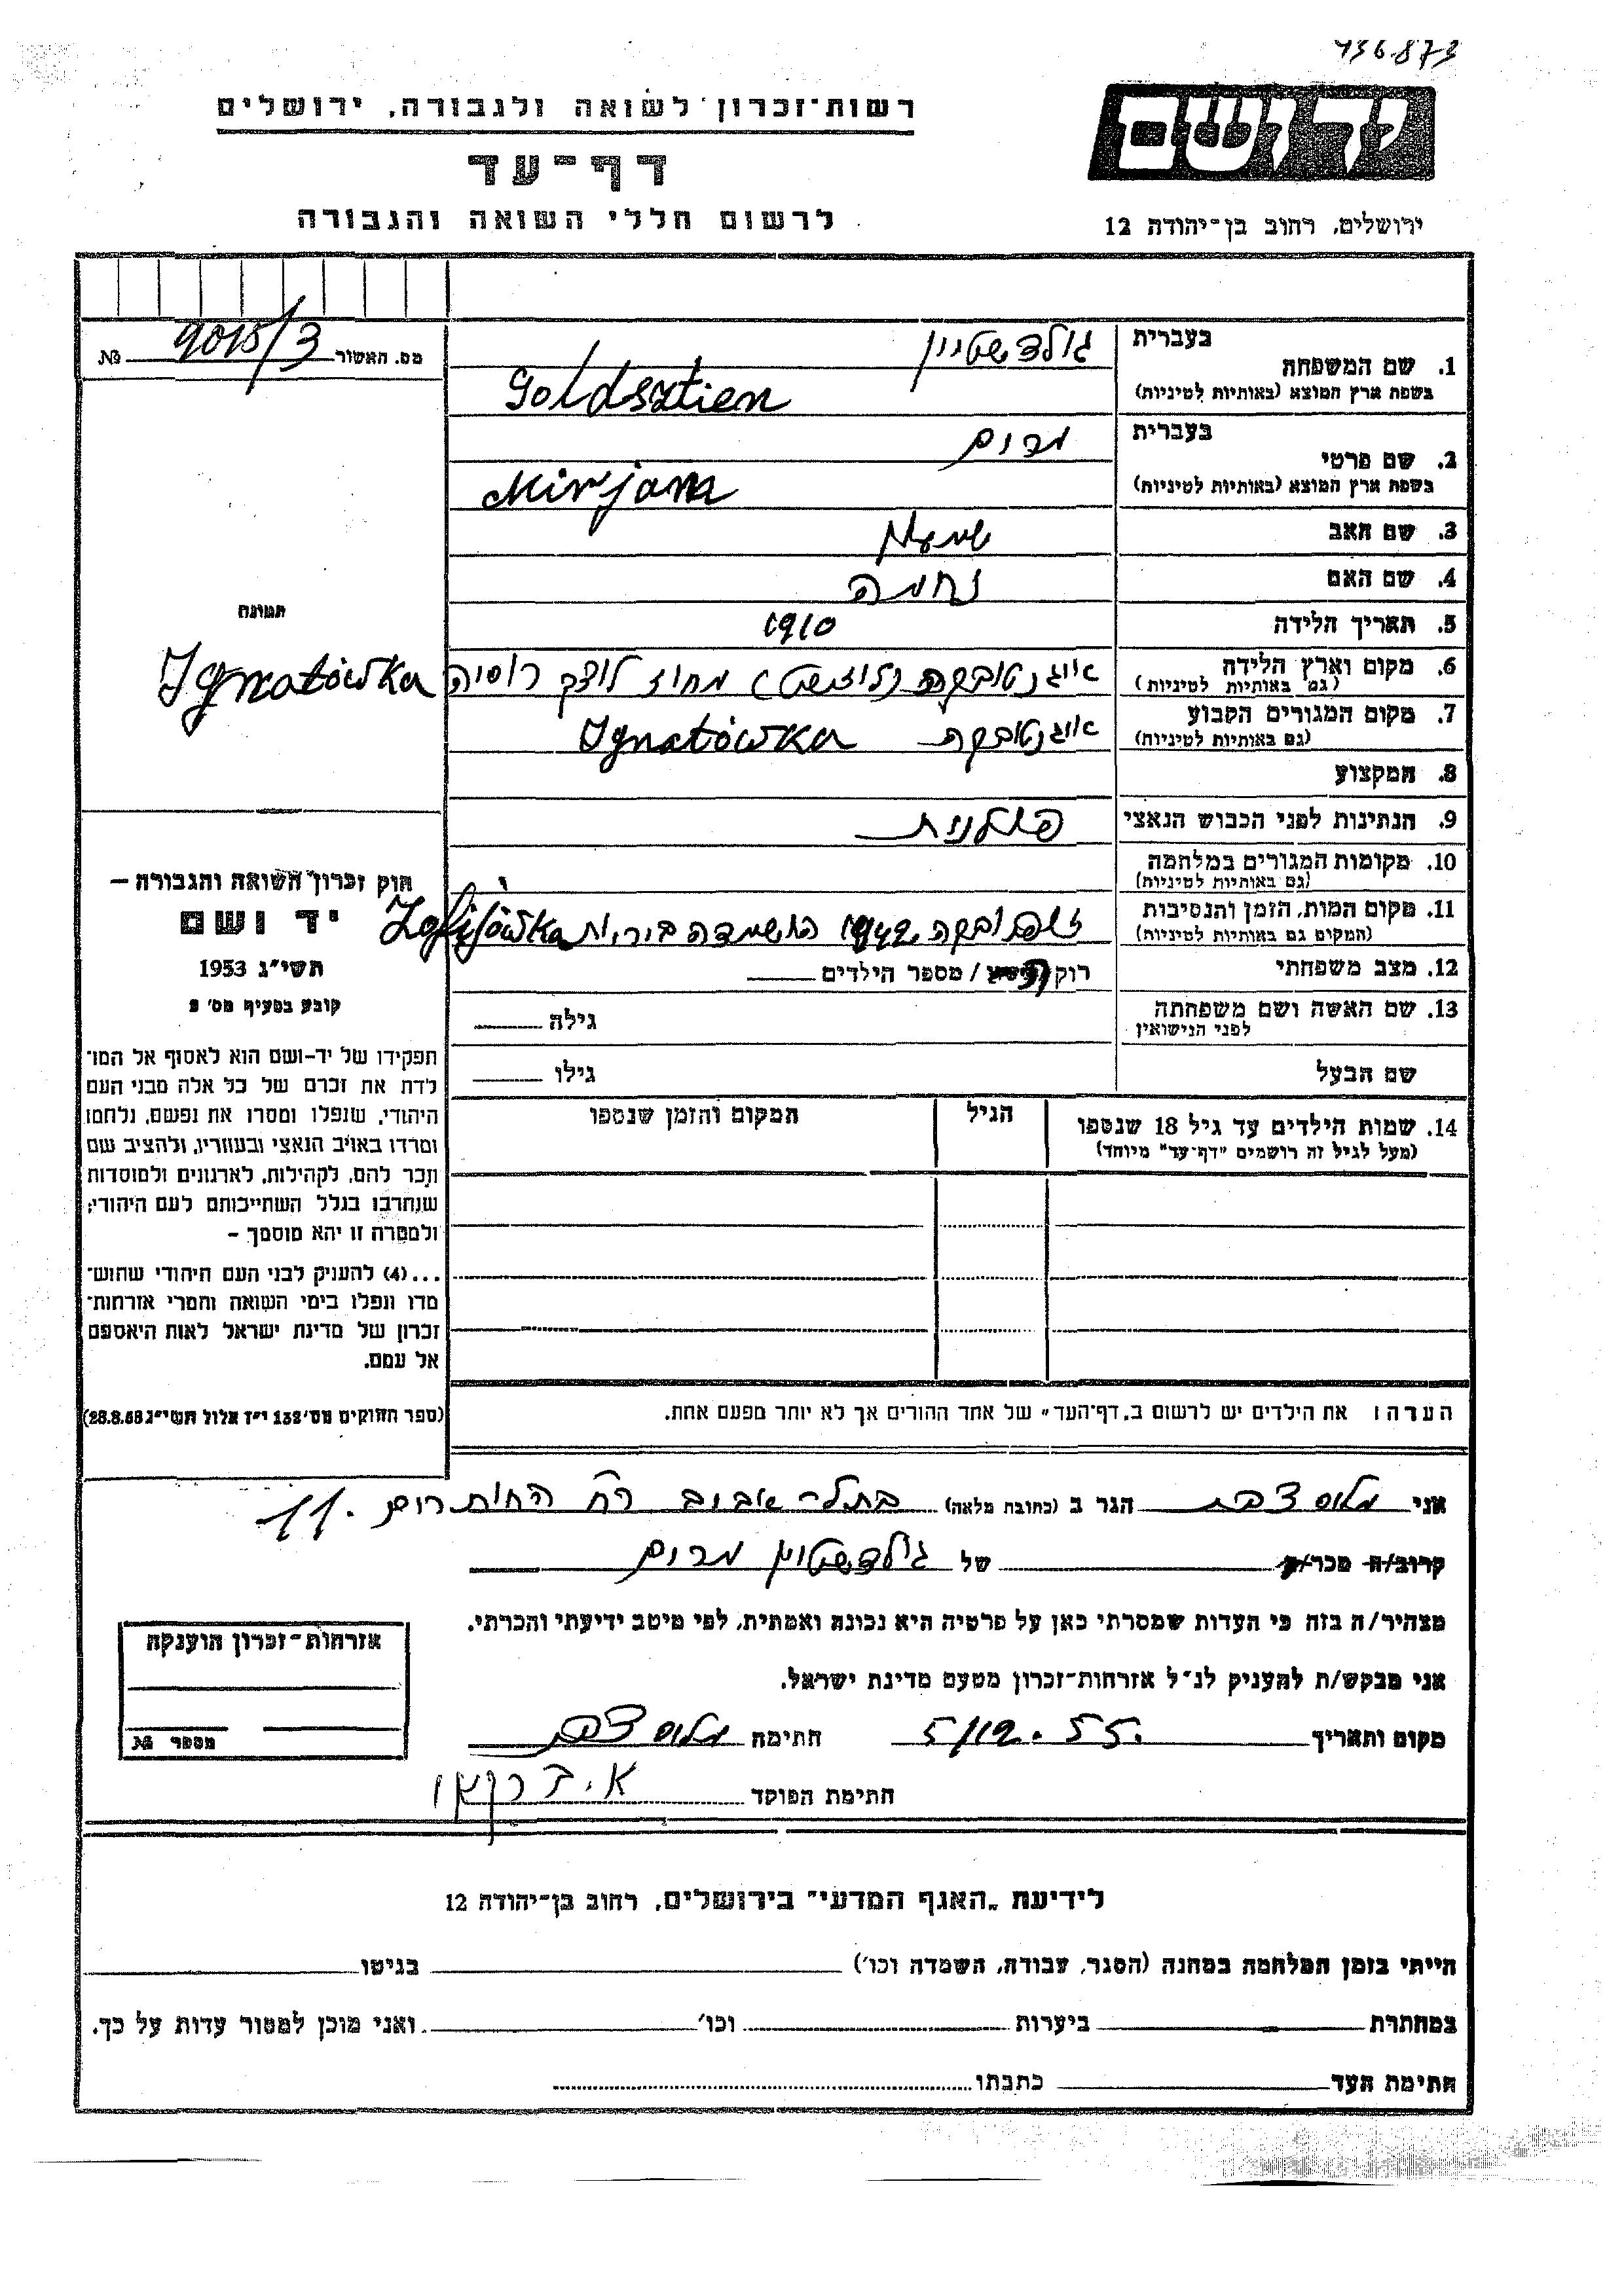 736873
יד ושם
רשות־זכרון לשואה ולגבורה, ירושלים
דף־עד
לרשום חללי השואה והגבורה
ירושלים, רחוב בן־יהודה 12
מס. האשור 9015/3 №
בעברית גולדשטיין
1. שם המשפחה
בשפת ארץ המוצא (באותיות לטיניות) Goldsztien
בעברית מרים
2. שם פרטי
בשפת ארץ המוצא (באותיות לטיניות) Mirjam
3. שם האב שמעון
4. שם האם נחמה
5. תאריך הלידה 1910
6. מקום וארץ הלידה איגנטובקה (לוזישט) מחוז לוצק רוסיה Ignatówka
(גם באותיות לטיניות)
7. מקום המגורים הקבוע איגנטובקה Ignatówka
(גם באותיות לטיניות)
8. המקצוע
9. הנתינות לפני הכבוש הנאצי פולנית
10. מקומות המגורים במלחמה
(גם באותיות לטיניות)
11. מקום המות, הזמן והנסיבות זופיובקה 1942 הושמדה ביריות Zofijówka
(המקום גם באותיות לטיניות)
12. מצב משפחתי רווק / מספר הילדים
13. שם האשה ושם משפחתה גילה
לפני הנישואין
שם הבעל גילו
14. שמות הילדים עד גיל 18 שנספו הגיל המקום והזמן שנספו
(מעל לגיל זה רושמים "דף־עד" מיוחד)
הערה: את הילדים יש לרשום ב„דף־העד" של אחד ההורים אך לא יותר מפעם אחת.
תמונה
חוק זכרון השואה והגבורה –
יד ושם
תשי״ג 1953
קובע בסעיף מס׳ 2
תפקידו של יד-ושם הוא לאסוף אל המו־
לדת את זכרם של כל אלה מבני העם
היהודי, שנפלו ומסרו את נפשם, נלחמו
ומרדו באויב הנאצי ובעוזריו, ולהציב שם
וזכר להם, לקהילות, לארגונים ולמוסדות
שנחרבו בגלל השתייכותם לעם היהודי;
ולמטרה זו יהא מוסמך –
...(4) להעניק לבני העם היהודי שהוש־
מדו ונפלו בימי השואה והמרי אזרחות־
זכרון של מדינת ישראל לאות היאספם
אל עמם.
(ספר החוקים מס׳ 132 י״ז אלול תשי״ג 28.8.53)
אני הגר ב (כתובת מלאה) בתל-אביב רח החותרים 11.
קרוב/ה מכר/ה של גולדשטיין מרים
מצהיר/ה בזה כי העדות שמסרתי כאן על פרטיה היא נכונה ואמתית, לפי מיטב ידיעתי והכרתי.
אני מבקש/ת להעניק לנ״ל אזרחות־זכרון מטעם מדינת ישראל.
מקום ותאריך 5/12.55. חתימה
חתימת הפוקד
אזרחות־זכרון הוענקה
מספר №
לידיעת „האגף המדעי" בירושלים, רחוב בן־יהודה 12
הייתי בזמן המלחמה במחנה (הסגר, עבודה, השמדה וכו׳) בגיטו
במחתרת ביערות וכו׳ ואני מוכן למסור עדות על כך.
חתימת העד כתבתו